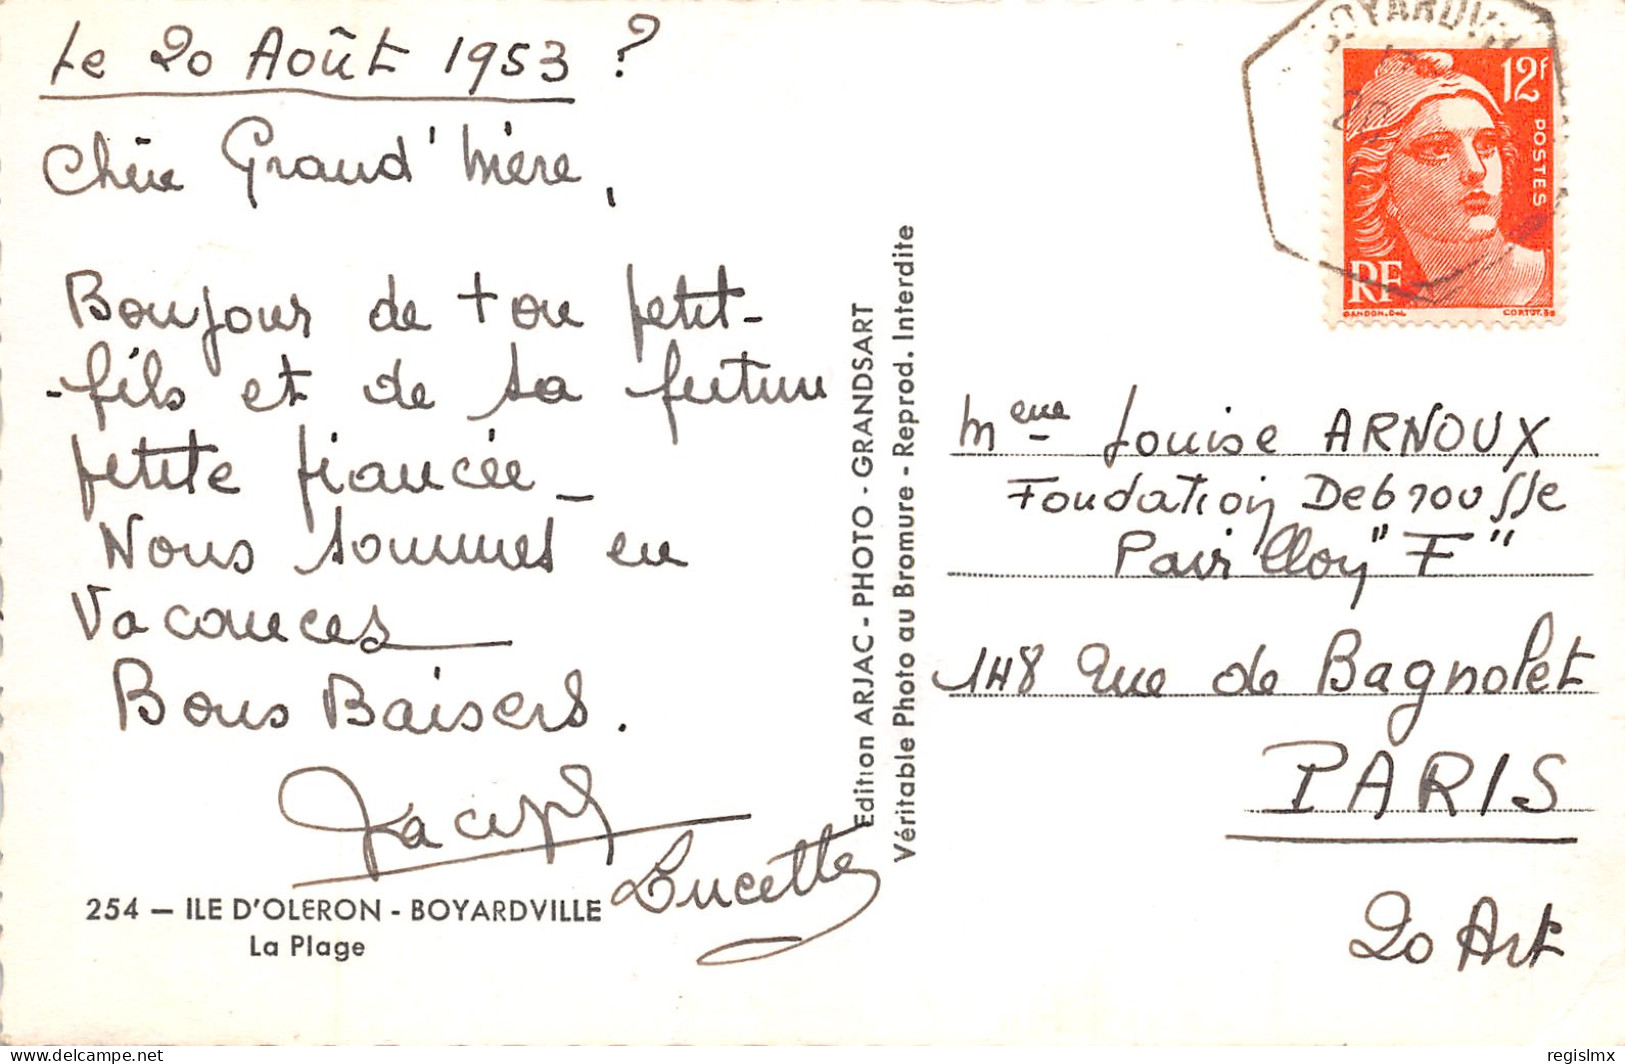 Le 20 Août 1953 ?
Chère Grand'Mère,
Bonjour de ton petit-
-fils et de sa future
petite fiancée _
Nous sommes en
Vacances
Bons Baisers.
Lucette
254 — ILE D'OLERON - BOYARDVILLE
La Plage
Edition ARJAC - PHOTO - GRANDSART
Véritable Photo au Bromure - Reprod. Interdite
BOYARDVI
20
12F
POSTES
RF
GANDON.Del.
CORTOT.Sc
Mme Louise ARNOUX
Fondation Debrousse
Pavillon "F"
148 Rue de Bagnolet
PARIS
20 Art
regislmx